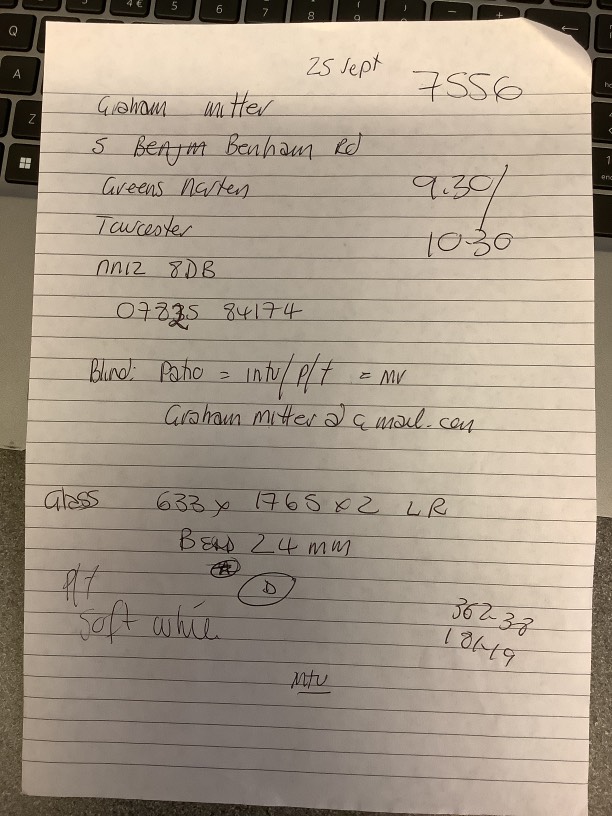 25 Sept 7556
Graham mitter
5 Benjm Benham Rd
Greens Norten 9.30/
Towcester 10-30
NN12 8DB
07835 84174
Blind: Patio = intu/p/t = MV
Graham mitter @ G mail. com
Glass 633 x 1765 x 2 LR
BEAD 24 mm
D
p/t
Soft white
362-38
181-19
Mtu